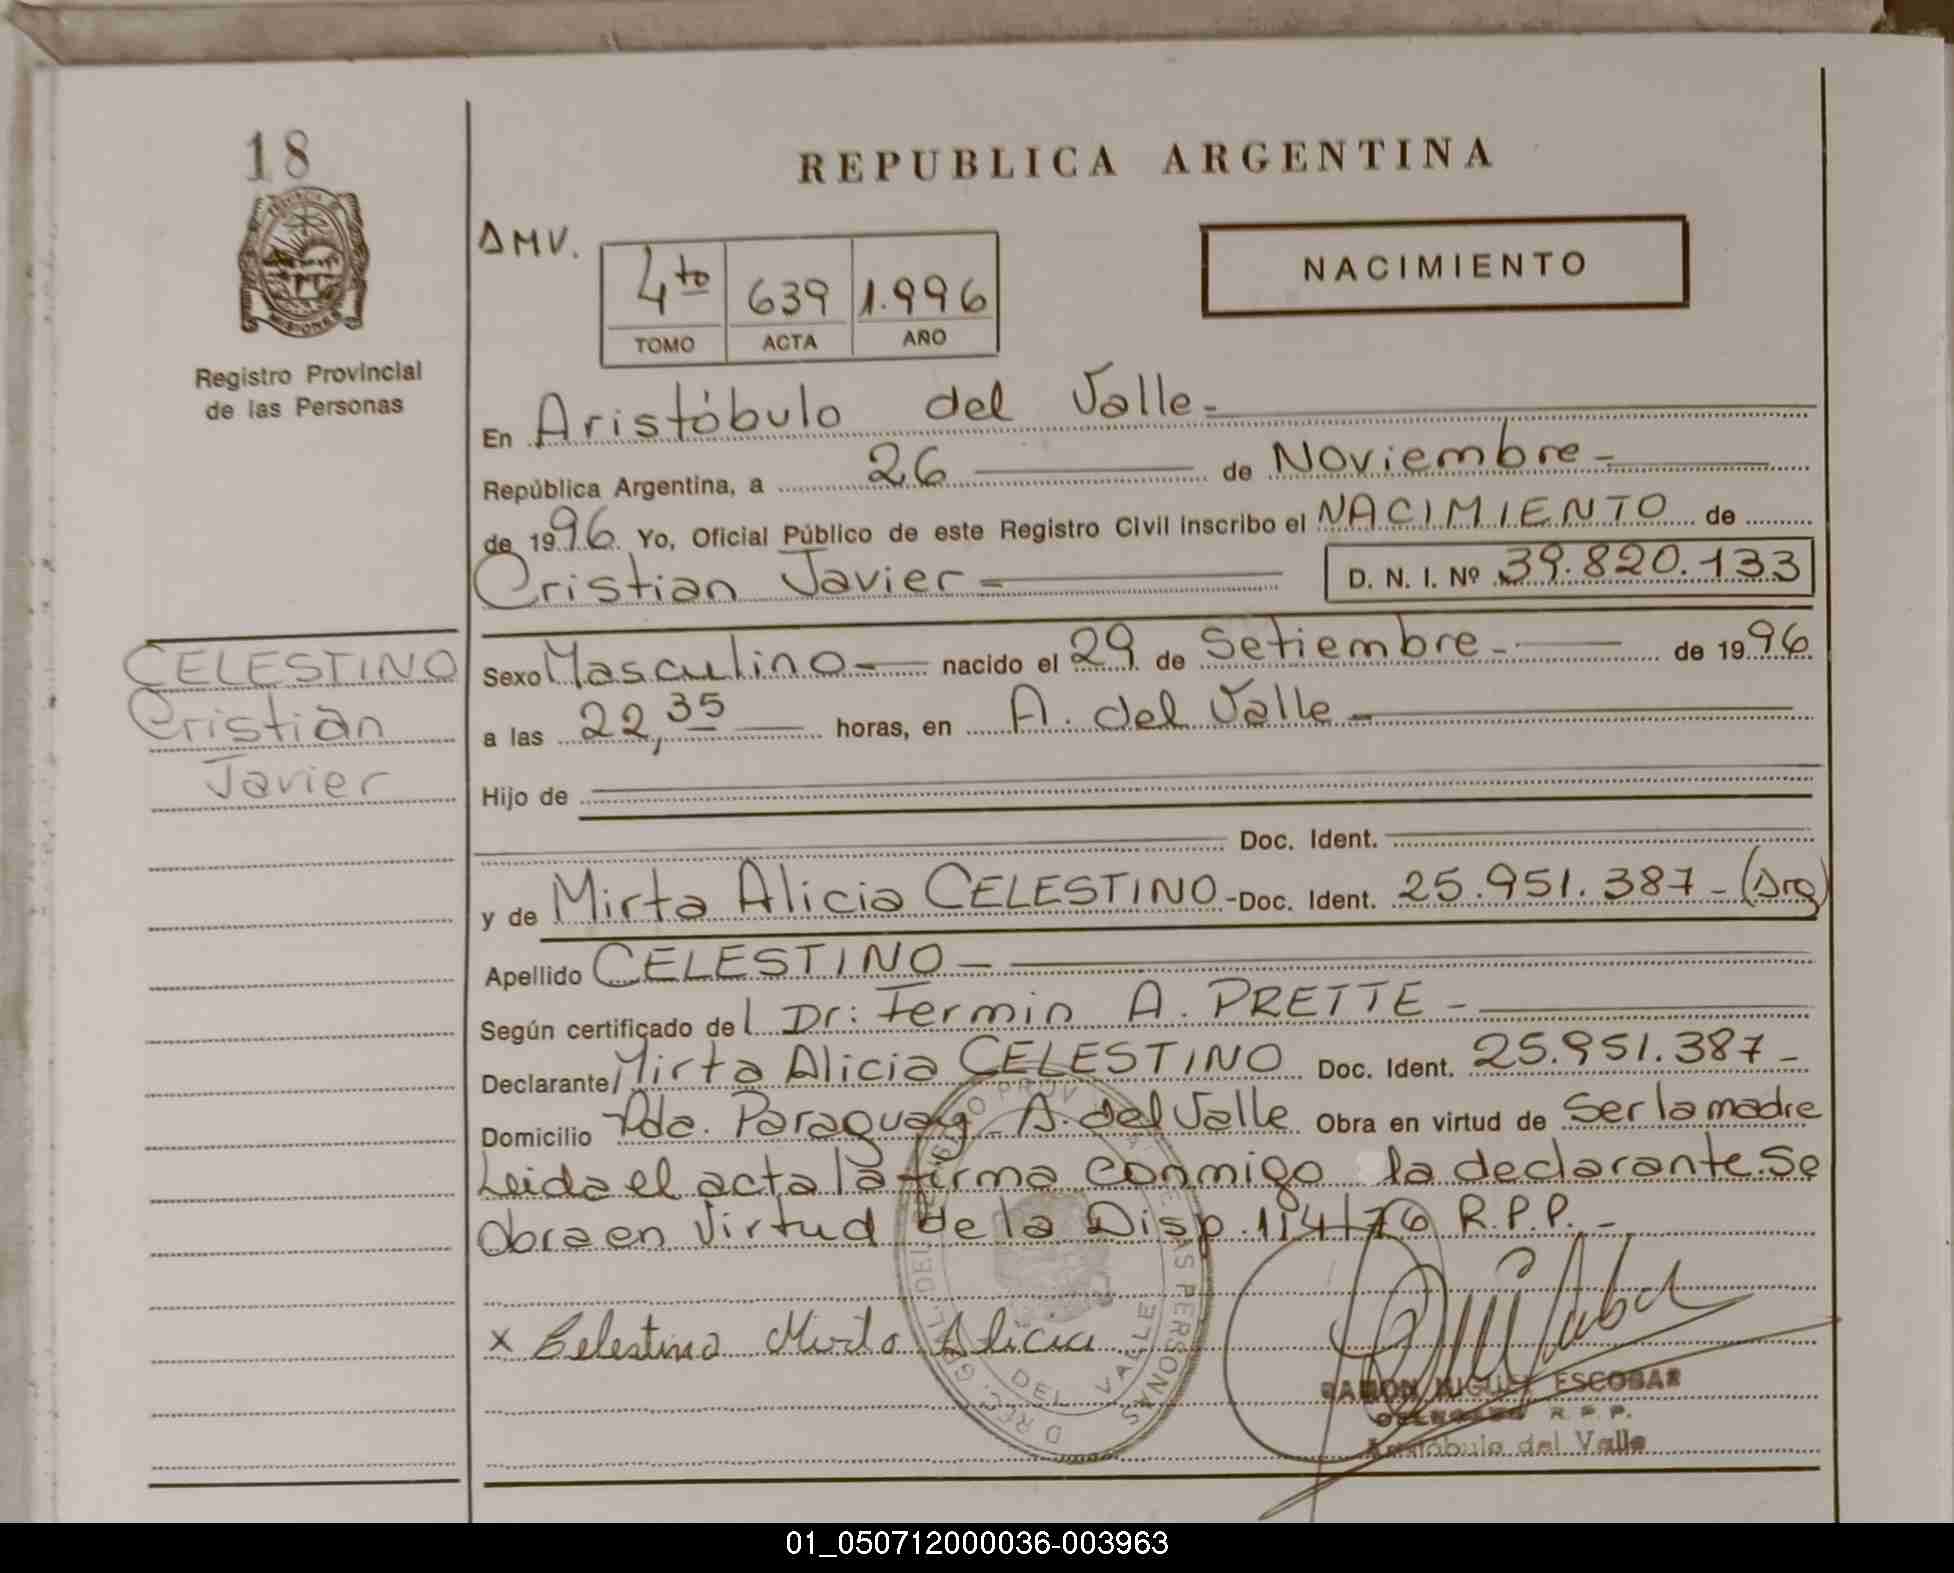 18
REPUBLICA ARGENTINA
AMV.
4to 639 1.996
TOMO ACTA AÑO
NACIMIENTO
Registro Provincial
de las Personas
En Aristóbulo del Valle-
República Argentina, a 26 de Noviembre-
de 1996 Yo, Oficial Público de este Registro Civil inscribo el NACIMIENTO de
Cristian Javier- D. N. I. Nº 39.820.133
CELESTINO
Cristian
Javier
Sexo Masculino- nacido el 29 de Setiembre- de 1996
a las 22,35 horas, en A. del Valle-
Hijo de
Doc. Ident.
y de Mirta Alicia CELESTINO-Doc. Ident. 25.951.387-(Arg)
Apellido CELESTINO-
Según certificado del Dr: Fermin A. PRETTE-
Declarante Mirta Alicia CELESTINO Doc. Ident. 25.951.387-
Domicilio Pda. Paraguay A. del Valle Obra en virtud de Ser la madre
Leida el acta la firma conmigo la declarante. Se
Obra en Virtud de la Disp. 114/76 R.P.P.-
x Celestino Mirta Alicia
DEL VALLE
LAS PERSONAS
RAMON MIGUEL ESCOBAR
DELEGADO R. P. P.
Aristóbulo del Valle
01_050712000036-003963